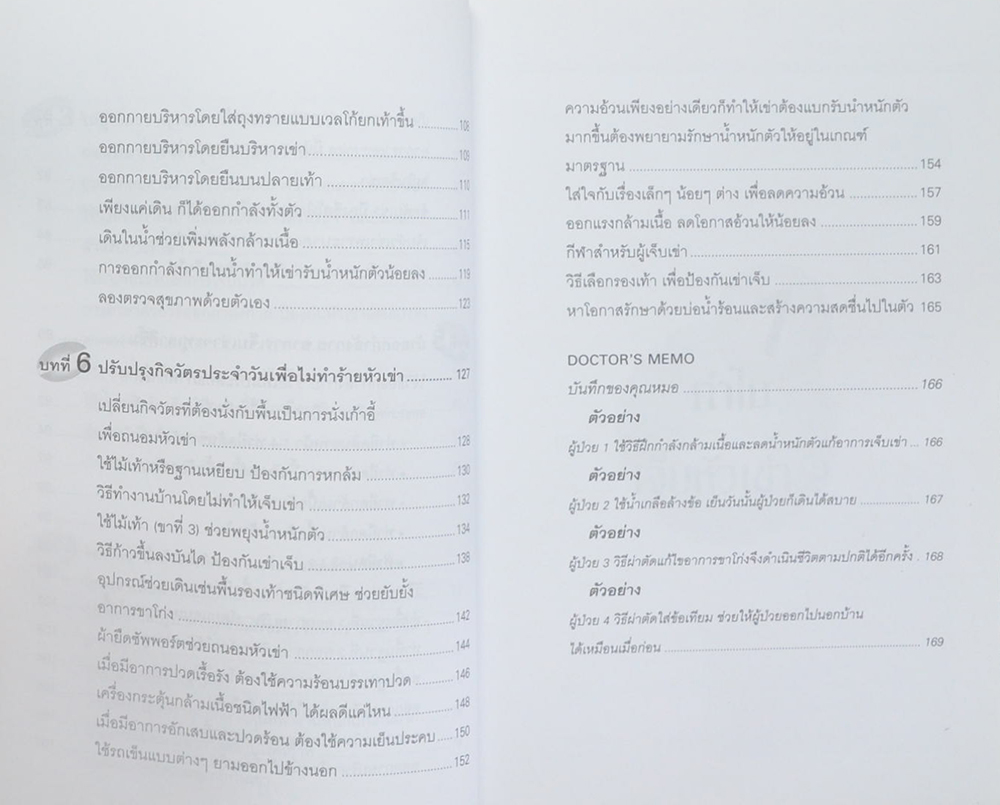 ออกกายบริหารโดยใส่ถุงทรายแบบเวลโก้ยกเท้าขึ้น ........ 108
ออกกายบริหารโดยยืนบริหารเข่า ........ 109
ออกกายบริหารโดยยืนบนปลายเท้า ........ 110
เพียงแค่เดิน ก็ได้ออกกำลังทั้งตัว ........ 111
เดินในน้ำช่วยเพิ่มพลังกล้ามเนื้อ ........ 115
การออกกำลังกายในน้ำทำให้เข่ารับน้ำหนักตัวน้อยลง ........ 119
ลองตรวจสุขภาพด้วยตัวเอง ........ 123
บทที่ 6 ปรับปรุงกิจวัตรประจำวันเพื่อไม่ทำร้ายหัวเข่า ........ 127
เปลี่ยนกิจวัตรที่ต้องนั่งกับพื้นเป็นการนั่งเก้าอี้
เพื่อถนอมหัวเข่า ........ 128
ใช้ไม้เท้าหรือฐานเหยียบ ป้องกันการหกล้ม ........ 130
วิธีทำงานบ้านโดยไม่ทำให้เจ็บเข่า ........ 132
ใช้ไม้เท้า (ขาที่ 3) ช่วยพยุงน้ำหนักตัว ........ 134
วิธีก้าวขึ้นลงบันได ป้องกันเข่าเจ็บ ........ 138
อุปกรณ์ช่วยเดินเช่นพื้นรองเท้าชนิดพิเศษ ช่วยยับยั้ง
อาการขาโก่ง ........ 142
ผ้ายืดซัพพอร์ตช่วยถนอมหัวเข่า ........ 144
เมื่อมีอาการปวดเรื้อรัง ต้องใช้ความร้อนบรรเทาปวด ........ 146
เครื่องกระตุ้นกล้ามเนื้อชนิดไฟฟ้า ได้ผลดีแค่ไหน ........ 148
เมื่อมีอาการอักเสบและปวดร้อน ต้องใช้ความเย็นประคบ ........ 150
ใช้รถเข็นแบบต่างๆ ยามออกไปข้างนอก ........ 152
ความอ้วนเพียงอย่างเดียวก็ทำให้เข่าต้องแบกรับน้ำหนักตัว
มากขึ้นต้องพยายามรักษาน้ำหนักตัวให้อยู่ในเกณฑ์
มาตรฐาน ........ 154
ใส่ใจกับเรื่องเล็กๆ น้อยๆ ต่าง เพื่อลดความอ้วน ........ 157
ออกแรงกล้ามเนื้อ ลดโอกาสอ้วนให้น้อยลง ........ 159
กีฬาสำหรับผู้เจ็บเข่า ........ 161
วิธีเลือกรองเท้า เพื่อป้องกันเข่าเจ็บ ........ 163
หาโอกาสรักษาด้วยบ่อน้ำร้อนและสร้างความสดชื่นไปในตัว 165
DOCTOR'S MEMO
บันทึกของคุณหมอ ........ 166
ตัวอย่าง
ผู้ป่วย 1 ใช้วิธีฝึกกำลังกล้ามเนื้อและลดน้ำหนักตัวแก้อาการเจ็บเข่า ... 166
ตัวอย่าง
ผู้ป่วย 2 ใช้น้ำเกลือล้างข้อ เย็นวันนั้นผู้ป่วยก็เดินได้สบาย ........ 167
ตัวอย่าง
ผู้ป่วย 3 วิธีผ่าตัดแก้ไขอาการขาโก่งจึงดำเนินชีวิตตามปกติได้อีกครั้ง . 168
ตัวอย่าง
ผู้ป่วย 4 วิธีผ่าตัดใส่ข้อเทียม ช่วยให้ผู้ป่วยออกไปนอกบ้าน
ได้เหมือนเมื่อก่อน ........ 169